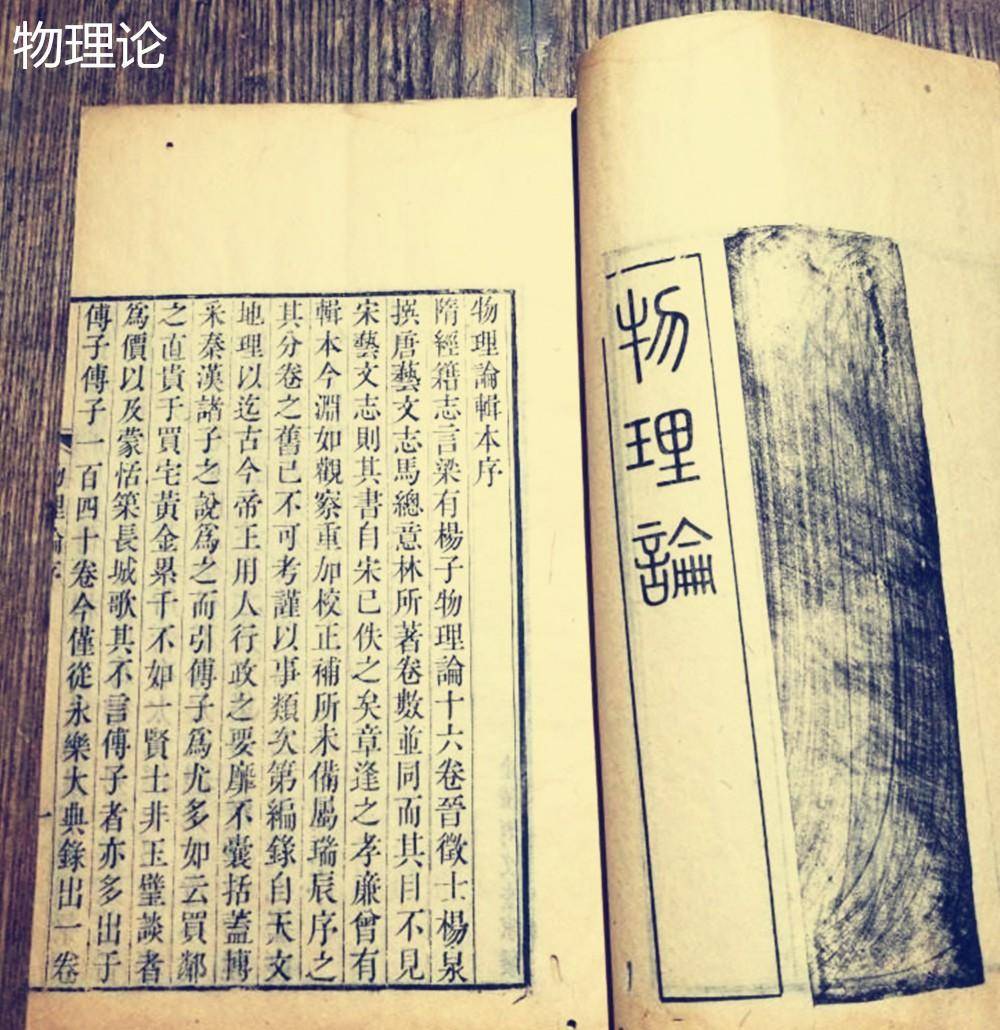 物理论
物理論
物理論輯本序
隋經籍志言梁有楊子物理論十六卷晉徵士楊泉
撰唐藝文志馬總意林所著卷數並同而其目不見
宋藝文志則其書自宋已佚之矣章逢之孝廉曾有
輯本今淵如觀察重加校正補所未備屬瑞辰序之
其分卷之舊已不可考謹以事類次第編錄自天文
地理以迄古今帝王用人行政之要靡不囊括蓋博
采秦漢諸子之說爲之而引傅子爲尤多如云買鄰
之直貴于買宅黃金累千不如一賢士非玉璧談者
爲價以及蒙恬築長城歌其不言傅子者亦多出于
傅子傅子一百四十卷今僅從永樂大典錄出一卷
物理論序
一